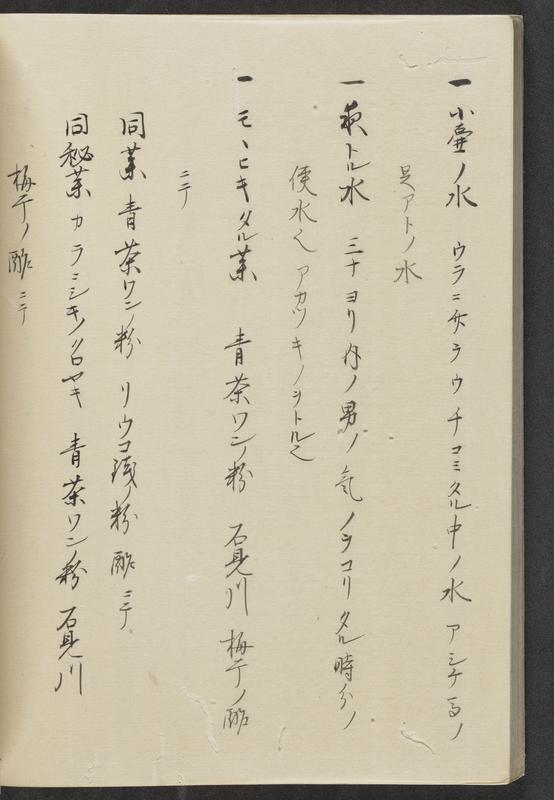 一 小壷ノ水 ウラニ生ラウチコミタル中ノ水 アシケ馬ノ
足アトノ水
一 夜トル水 三十ヨリ内ノ男ノ氣ノヲコリタル時分ノ
便水也 アカツキノヲトル也
一 モヽヒキタル薬 青茶ワンノ粉 石見川 梅干ノ酢
ニテ
同薬 青茶ワンノ粉 リウコ ノ粉 酢ニテ
同秘薬 カラミシキノクロヤキ 青茶ワンノ粉 石見川
梅干ノ酢ニテ